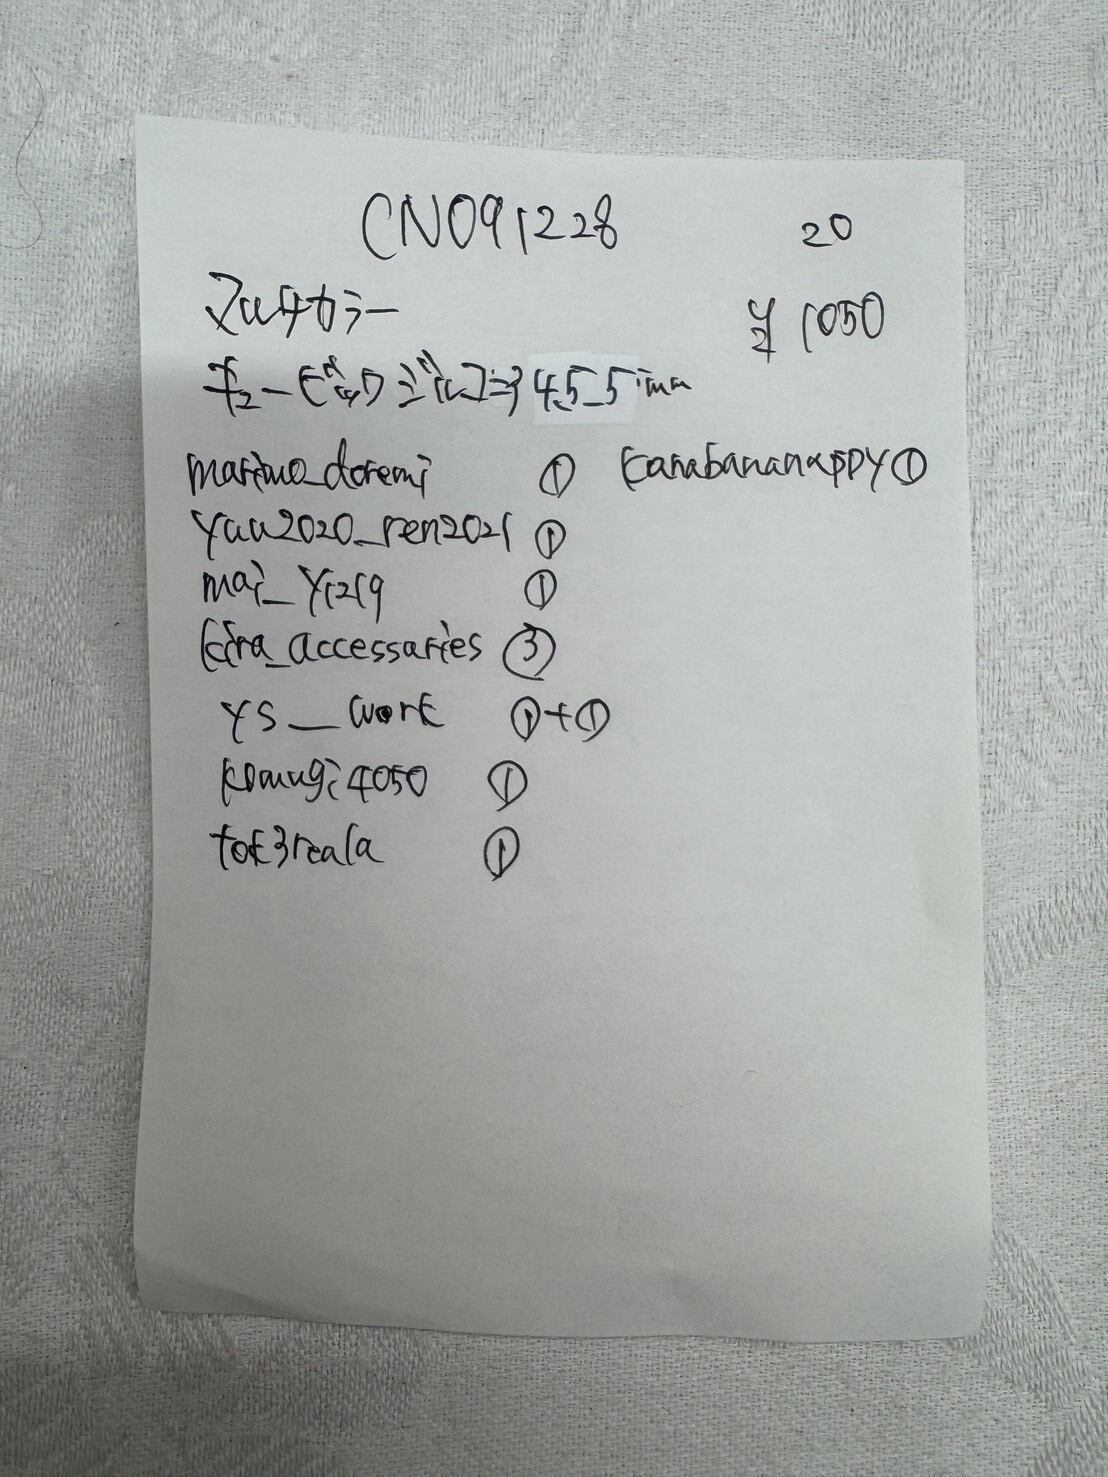 CN091228 20
マルチカラー ¥1050
4.5_5mm
marimo_doremi ① kanabananappy①
yuu2020_ren2021 ①
mai_y1219 ①
kira_accessaries ③
ys__work ①+①
komugi4050 ①
tok3reala ①